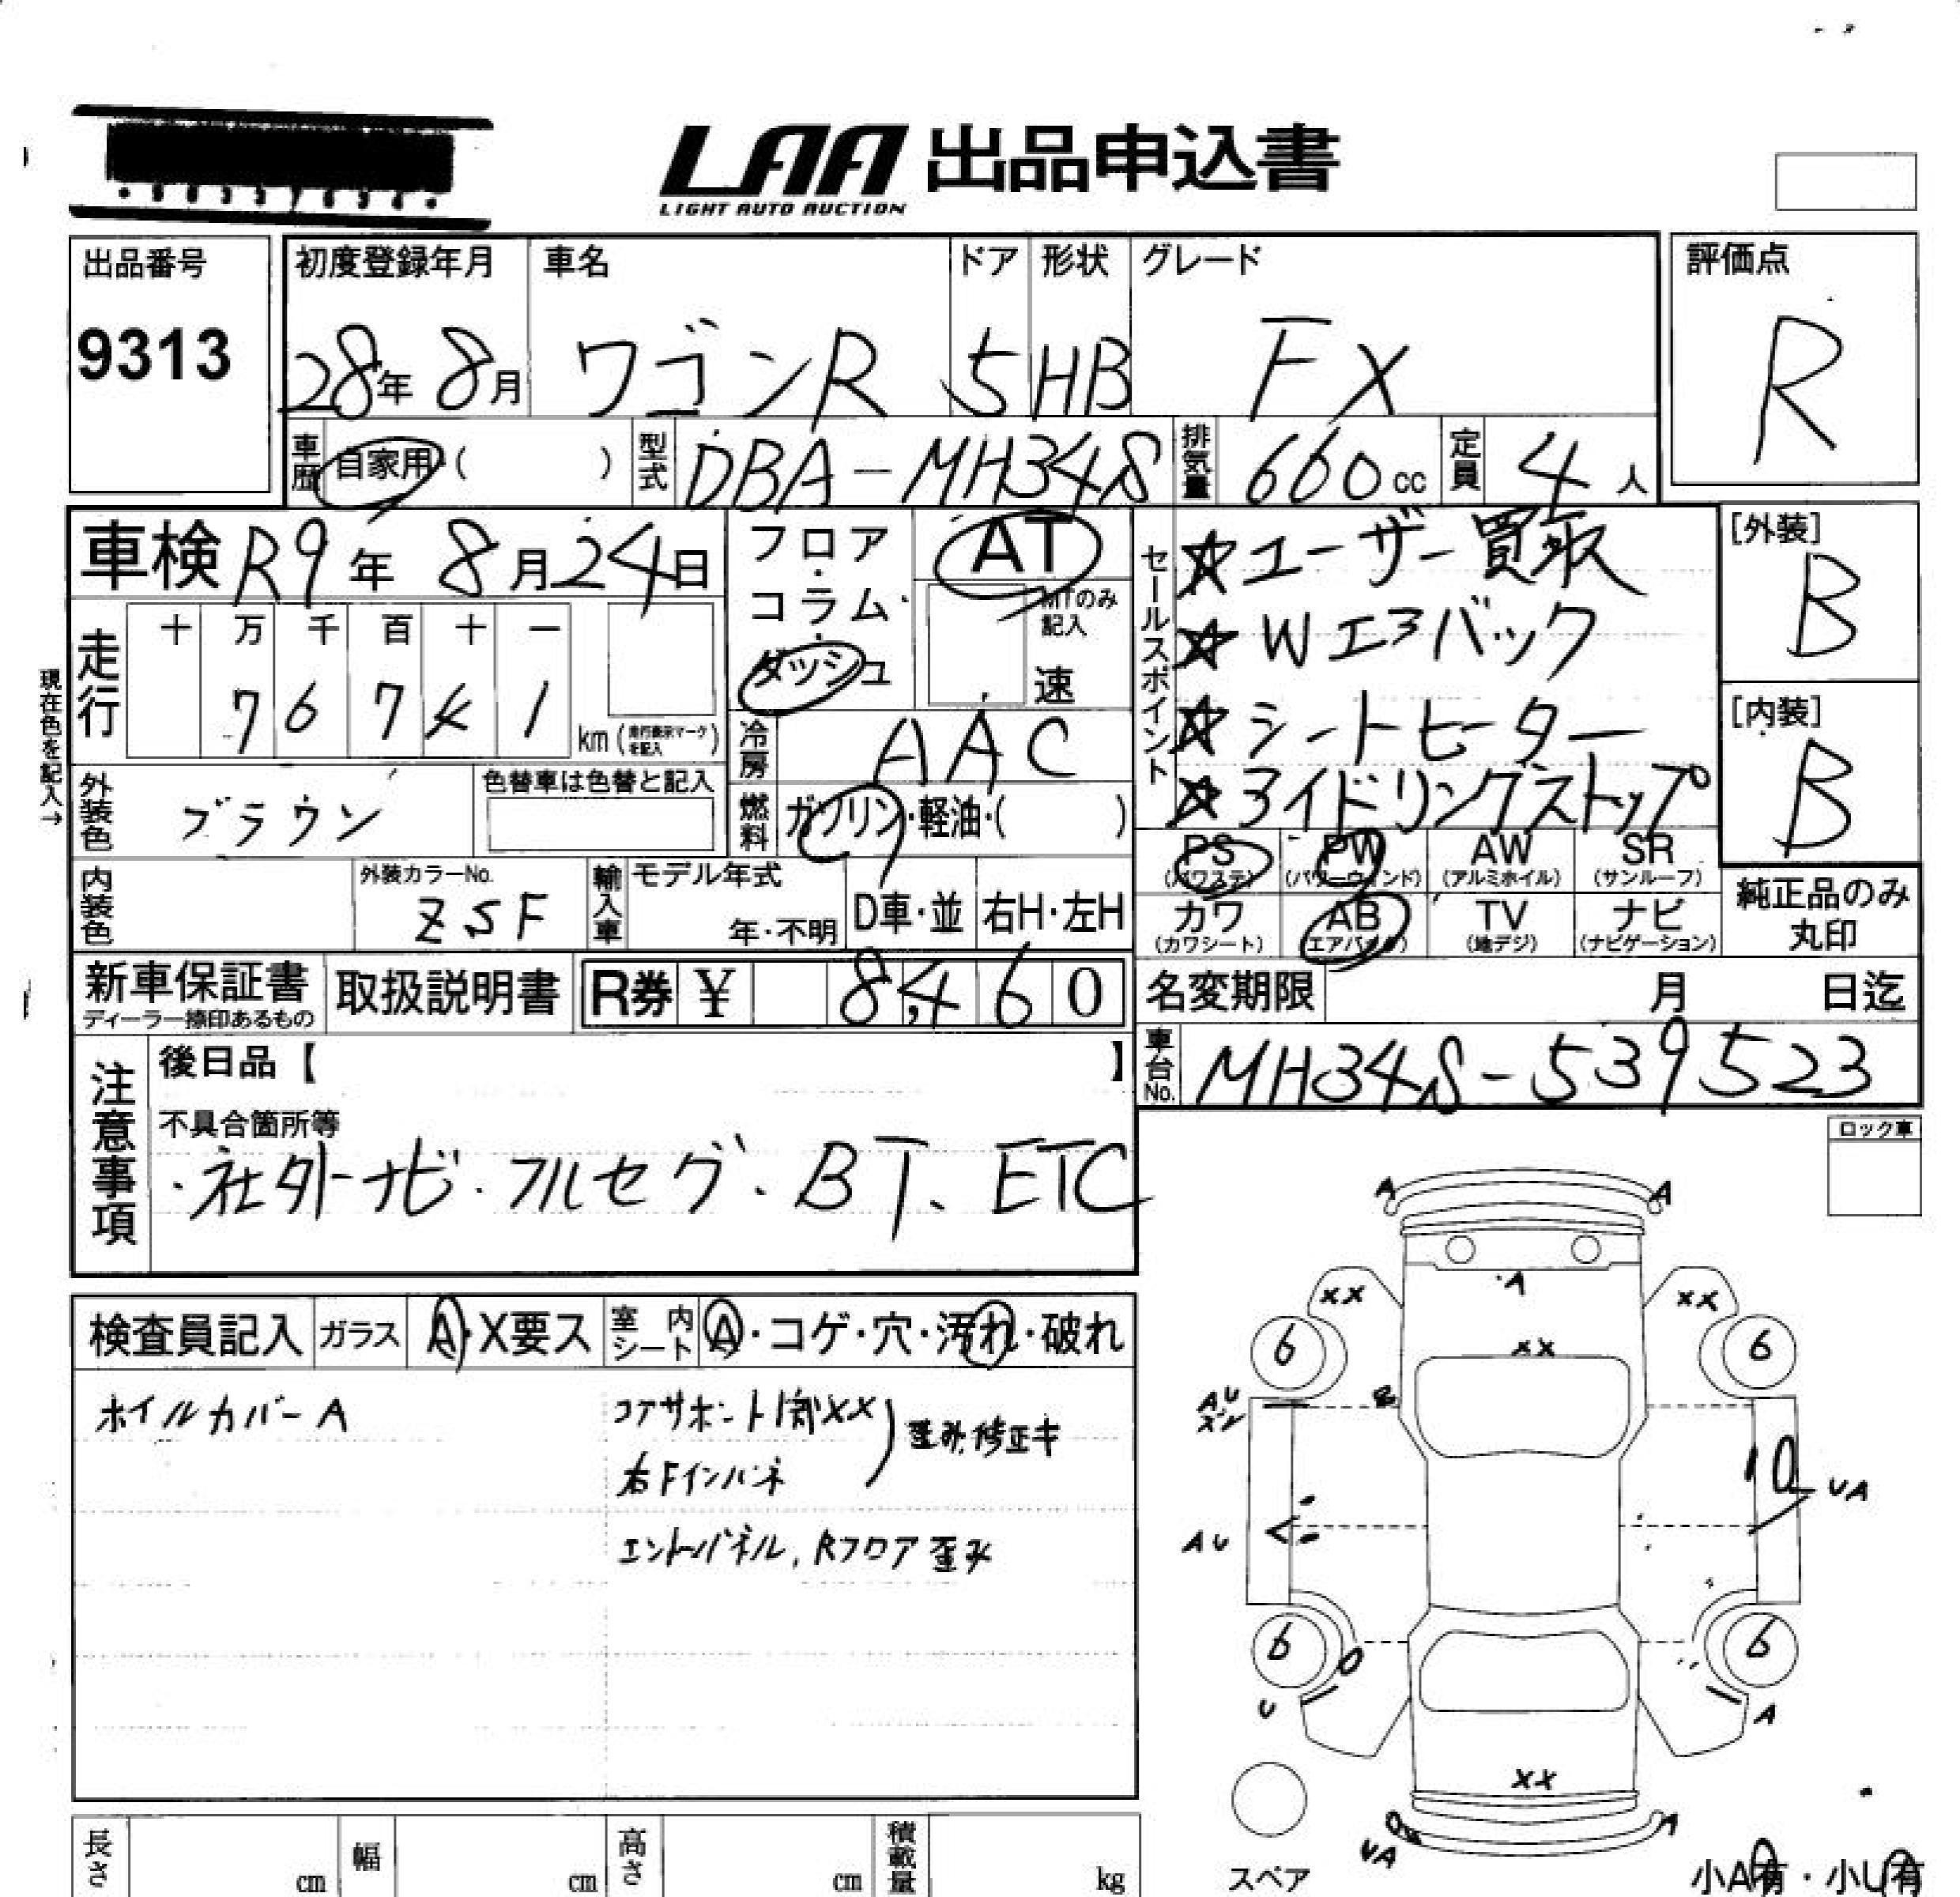 LAA 出品申込書
LIGHT AUTO AUCTION
出品番号
9313
初度登録年月
28年 8月
車名
ワゴンR
ドア
5
形状
HB
グレード
FX
評価点
R
車歴 自家用・( )
型式 DBA-MH34S
排気量 660cc
定員 4人
車検 R9年 8月24日
フロア・コラム・ダッシュ
AT
MTのみ記入
速
走行
十 万 千 百 十 一
7 6 7 4 1
km (走行表示マークを記入)
現在色を記入→
冷房 AAC
燃料 ガソリン・軽油・( )
外装色 ブラウン
色替車は色替と記入
内装色
外装カラーNo.
ZSF
輸入車
モデル年式
年・不明
D車・並
右H・左H
セールスポイント
☆ユーザー買取
☆Wエアバック
☆シートヒーター
☆アイドリングストップ
[外装]
B
[内装]
B
PS (パワステ)
PW (パワーウィンド)
AW (アルミホイル)
SR (サンルーフ)
カワ (カワシート)
AB (エアバッグ)
TV (地デジ)
ナビ (ナビゲーション)
純正品のみ丸印
新車保証書
ディーラー捺印あるもの
取扱説明書
R券 ¥ 8,460
名変期限 月 日迄
車台No. MH34S-539523
注意事項
後日品【 】
不具合箇所等
・社外ナビ・フルセグ、BT、ETC
ロック車
検査員記入
ガラス A・X要ス
室内シート A・コゲ・穴・汚れ・破れ
ホイルカバーA
コアサポート1部XX
右Fインパネ
歪み修正キ
エンドパネル、Rフロア歪み
A A
A
XX XX
XX
6 6
AU
AU
10
UA
6 6
U
A
XX
UA
A
スペア
小A有・小U有
長さ cm
幅 cm
高さ cm
積載量 kg